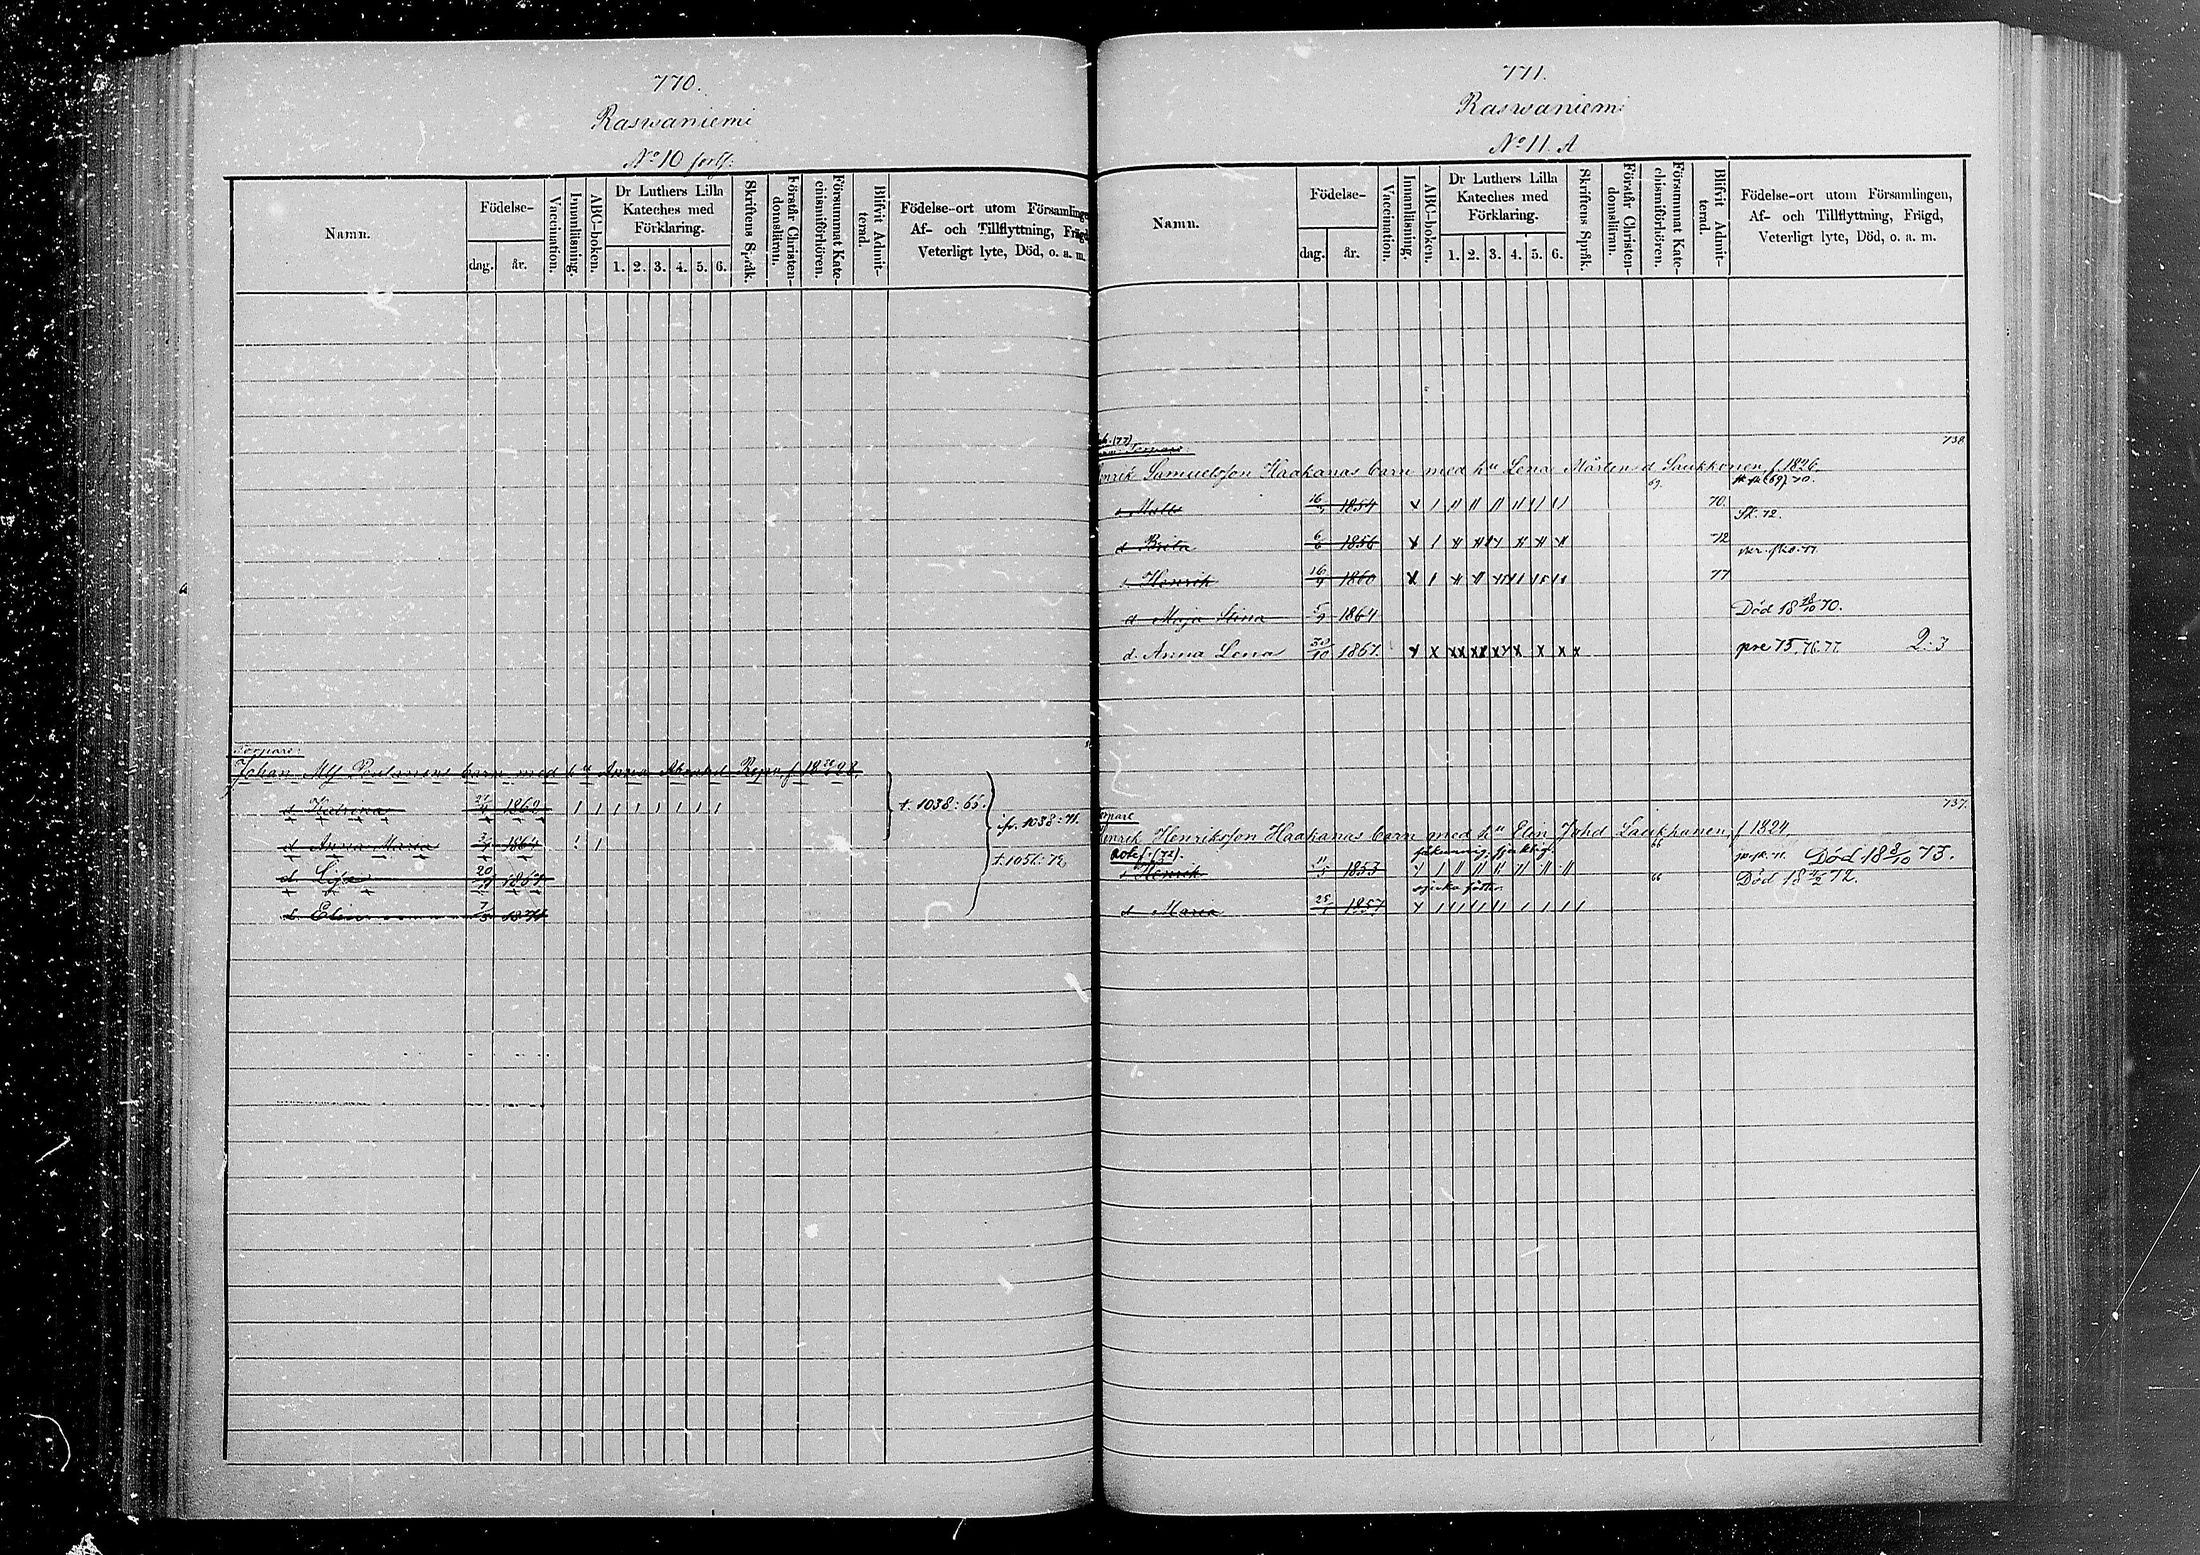 770.
Raswaniemi
No 10 forts:
Namn.
Födelse-
dag.
år.
Vaccination.
Innanläsning.
ABC-boken.
Dr Luthers Lilla Kateches med Förklaring.
1. 2. 3. 4. 5. 6.
Skriftens Språk.
Förstår Christen-domsläran.
Försummat Kate-chismiförhören.
Blifvit Admit-terad.
Födelse-ort utom Församlingen
Af- och Tillflyttning, Frägd
Veterligt lyte, Död, o. a. m.
Torpare:
Johan barn med hu Anna
d Katrina 1862
t. 1038: 65.
ifr. 1038: 71.
d Anna Maria 1864
t. 1051: 72.
d. Lisa 20 1867
d. Elin 7/5 1871
771.
Raswaniemi
No 11 A
Namn.
Födelse-
dag.
år.
Vaccination.
Innanläsning.
ABC-boken.
Dr Luthers Lilla Kateches med Förklaring.
1. 2. 3. 4. 5. 6.
Skriftens Språk.
Förstår Christen-domsläran.
Försummat Kate-chismiförhören.
Blifvit Admit-terad.
Födelse-ort utom Församlingen,
Af- och Tillflyttning, Frägd,
Veterligt lyte, Död, o. a. m.
738.
Henrik Samuelsson Haakanas barn med hu Lena Mårtens d Saukkonen, f. 1826
69.
s Matts 1854 70.
Sk. 72.
d Brita 6/6 1856 72
s Henrik 1860 77
d Maja Stina 1864 Död 18 18/10 70.
d. Anna Lena 30/10 1867. pre 75. 76. 77. 2: 3
737.
Torpare
Henrik Henriksson Haakanas barn med hu Elin Johd Laukkanen f 1824
66
s Henrik 11/5 1853 Död 18 8/10 73.
66 Död 18 72.
d Maria 25/1 1857